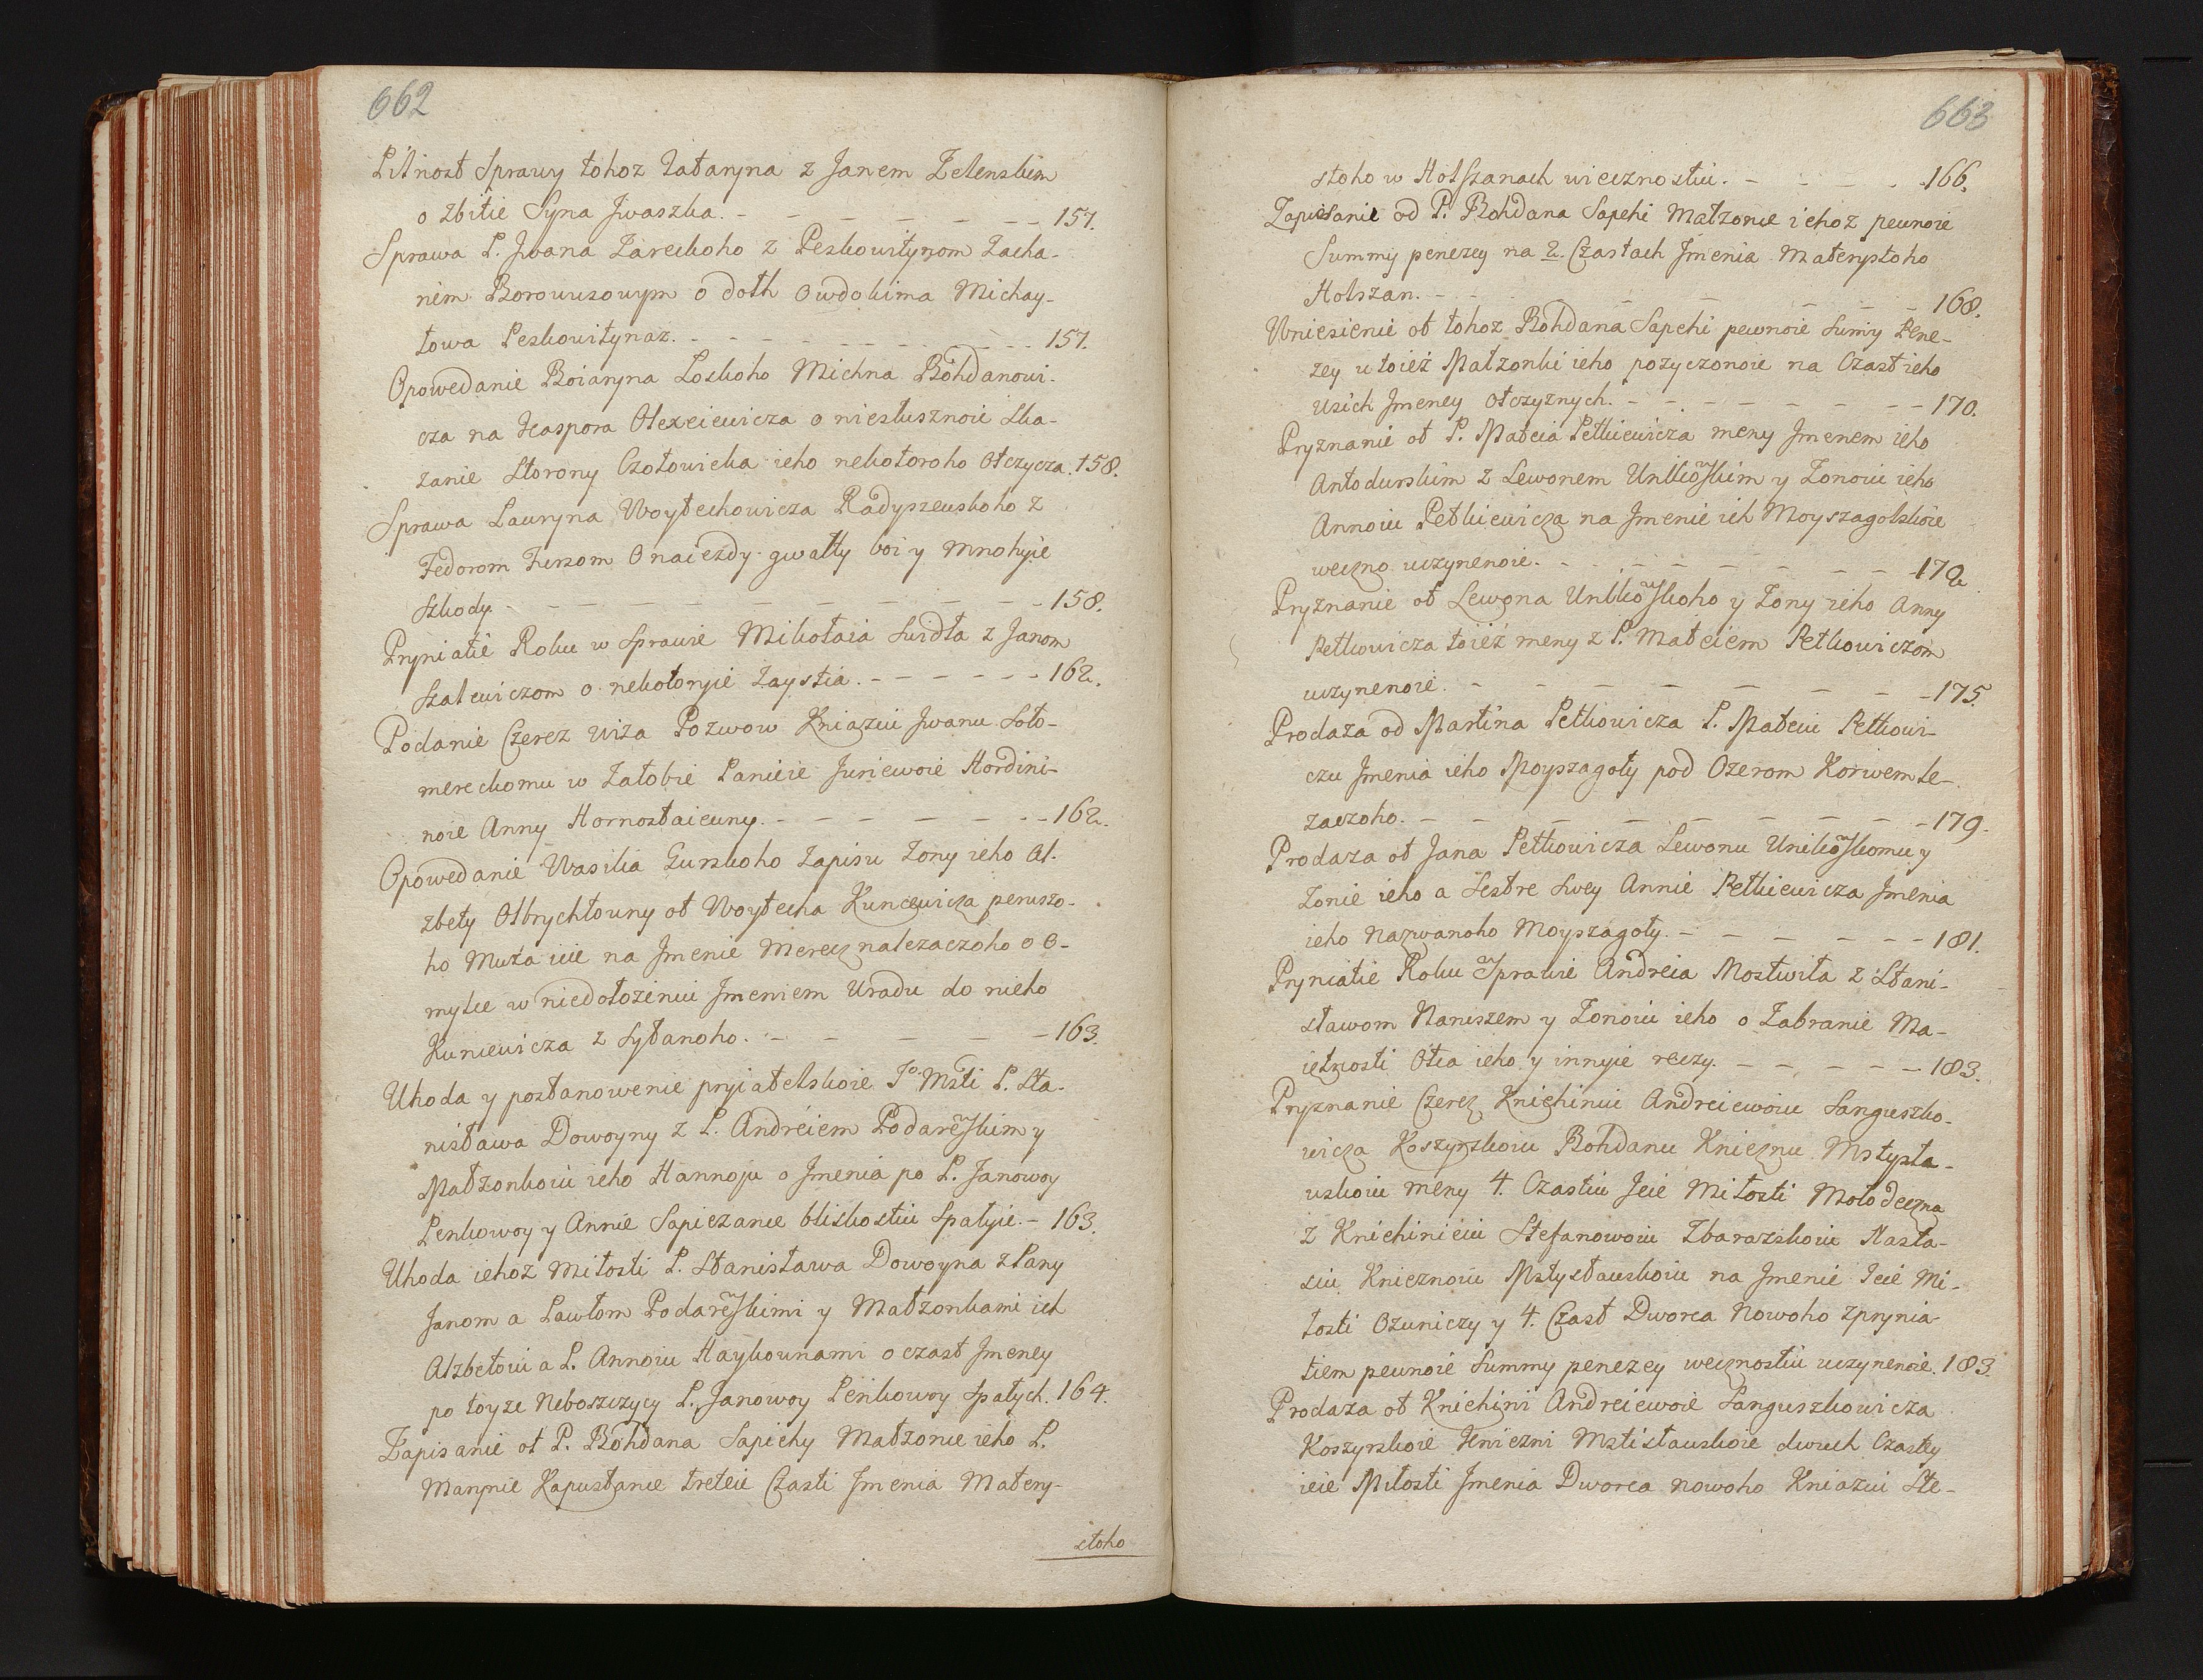 662
Pilnost Sprawy tohoz Tataryna z Janem Zelenskim
o zbitie Syna Jwaszka. - - - - - - - - 157.
Sprawa P. Jwana Zareckoho z Peskowitynom Zacha-
riem o doth Owdokima Michay-
łowa Peskowitynaz. - - - - - - - - - 157.
Opowedanie Boiaryna Loskoho Michna Bohdanowi-
cza na Kaspora Olexeiewicza o niesłusznoie Ska-
zanie Storony Czołowieka ieho nekotoroho Otczycza. 158.
Sprawa Lauryna Woytechowicza Radyszewskoho z
Fedorom o naiezdy gwałty boi y mnohyie
Szkody. - - - - - - - - - - 158.
Pryniatie Roku w Sprawie Mikołaia Swidła z Janom
Szalewiczom o nekotoryie Zaystia. - - - - - - 162.
Podanie Czerez Wiza Pozwow Kniaziu Jwanu Soło-
mereckomu w Załobie Panieie Juriewoie Hordini-
noie Anny Hornostaiewny. - - - - - - 162.
Opowedanie Wasilia Gurskoho Zapisu Zony ieho Al-
zbety Olbrychtowny ot Woytecha Kuncewicza perwszo-
ho Muża iie na Jmenie Merecz nalezaczoho o O-
myłce w niedołożeniu Jmeniem Uradu do nieho
Kuniewicza z Sytanoho. - - - - - 163.
Uhoda y postanowenie pryiatelskoie Jo Msti P. Sta-
nisława Dowoyny z P. Andreiem Podareskim y
Małzonkoiu ieho Hannoju o Jmenia po P. Janowoy
Penkowoy y Annie Sapiezance bliskostiu Spałyie. - 163.
Uhoda iehoz Miłosti P. Stanisława Dowoyna z Pany
Janom a Pawłom Podareskimi y Małzonkami ich
Alzbetoiu a P. Annoiu Haykownami o czast Jmeney
po toyze Neboszczycy P. Janowoy Penkowoy Spałych. 164.
Zapisanie ot P. Bohdana Sapiehy Małzonce ieho P.
Marynie Kapustance treteie Czasti Jmenia Matery-
stoho
663
stoho w Holszanach wiecznostiu. - - - - 166.
Zapisanie od P. Bohdana Sapehi Małzonce iehoz pewnoie
Summy penezey na 2. Czastach Jmenia Materystoho
Holszan. - - - - - - - 168.
Wniesienie ot tohoz Bohdana Sapehi pewnoie Sumy Pene-
zey u toież Małzonki ieho pozyczonoie na Czast ieho
Usich Jmeney Otczyznych. - - - - - - - - 170.
Pryznanie ot P. Mateia Petkiewicza meny Jmenem ieho
Antodurskim z Lewonem y Zonoiu ieho
Annoiu Petkiewicza na Jmenie ich Moyszagolskoie
weczno uczynenoie. - - - - - - - 172
Pryznanie ot Lewona y Zony ieho Anny
Petkowicza toież meny z P. Mateiem Petkowiczom
uczynenoie. - - - - - - - - 175.
Prodaza od Martina Petkowicza P. Mateiu Petkowi-
czu Jmenia ieho Moyszagoły pod Ozerom Korwem le-
zaczoho. - - - - - - - - - 179.
Prodaza ot Jana Petkowicza Lewonu y
Zonie ieho a Sestre Swey Annie Petkiewicza Jmenia
ieho Nazwanoho Moyszagoły. - - - - - - 181.
Pryniatie Roku w Sprawie Andreia Mostwiła z Stani-
sławom Naniszem y Zonoiu ieho o Zabranie Ma-
ietnosti Otca ieho y innyie reczy. - - - - - 183.
Pryznanie Czerez Knichiniu Andreiewoiu Sanguszko-
wicza Koszyrskoiu Bohdanu Knieznu Mstysła-
wskoiu meny 4. Czastiu Jeie Miłosti Mołodeczna
z Knichinieiu Stefanowoiu Zbarazskoiu Nasta-
siu Knieznoiu Mstysławskoiu na Jmenie Jeie Mi-
łosti Ozuniczy y 4. Czast Dworca Nowoho z prynia-
tiem pewnoie Summy penezey wecznostiu uczynenoie. 183.
Prodaza ot Knichini Andreiewoie Sanguszkowicza
Koszyrskoie Knieźni Mstisławskoie dwuch Czastey
ieie Miłosti Jmenia Dworca Nowoho Kniaziu Ste-